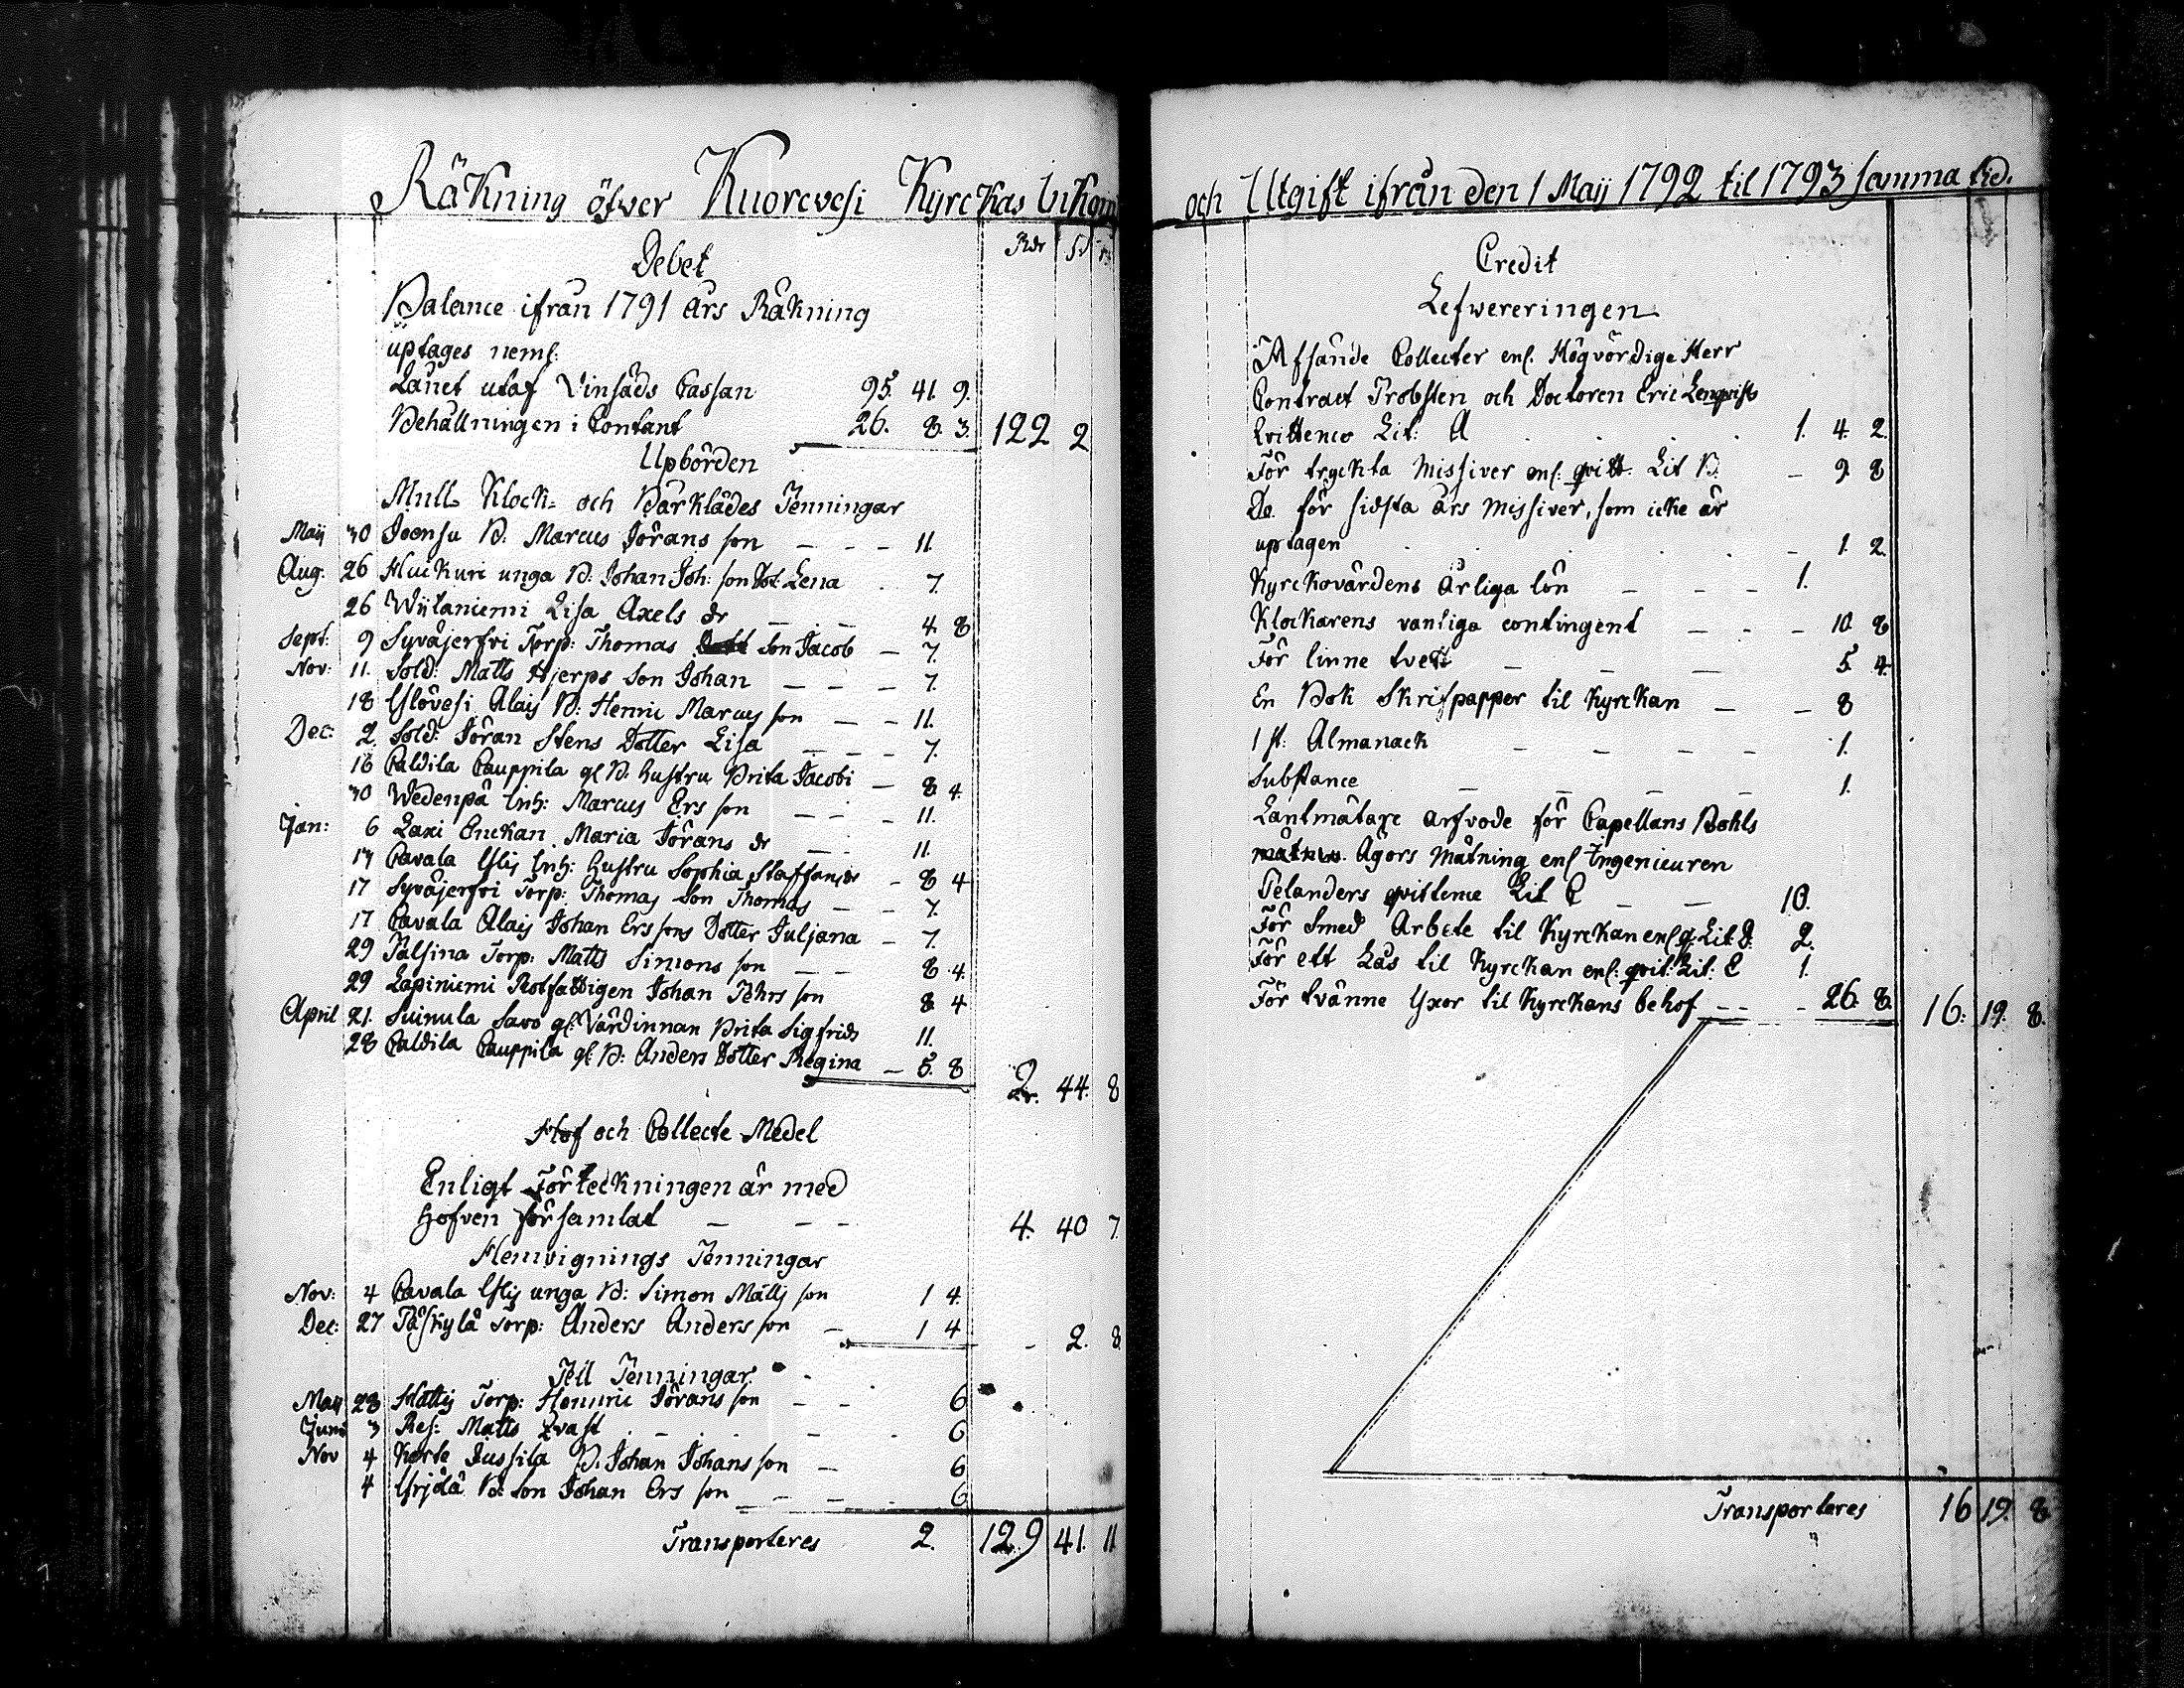 Räkning öfver Kuorevesi Kyrckas Inkom
Rdr S. r.
Debet
Balance ifrån 1791 års Räkning
uptages neml:
Lånet utaf Vinsåds Cassan 95. 41. 9.
Behållningen i Contant 26. 8. 3. 122 2
Upbörden
Mull Klock= och Bårklädes Penningar
Maij 30 Joensu B. Marcus Jörans son — — — 11.
Aug. 26 Huikuri unga B: Johan Joh: son Dot: Lena . 7.
26 Wijtaniemi Lisa Axels dr — — 4. 8
Sept. 9 Syväjerfvi Torp: Thomas son Jacob — 7.
Nov: 11. Sold: Matts Hjerps Son Johan — — — 7.
18 Ylövesi Alaij B: Henric Marcus son — — 11.
Dec: 2. Sold: Jöran Stens Dotter Lisa — — — 7.
16 Caldila Cauppila gl B. hustru Brita Jacobi — 8 4.
30 Wedenpä Inh: Marcus Ers son — — — 11.
Jan: 6 Laxi Enckan Maria Jörans dr — — 11.
13 Cavala Ylij Inh: hustru Sophia Staffans dr — 8 4
17 Syväjerfvi Torp: Thomas Son Thomas — — 7.
17 Cavala Alaij Johan Ers sons Dotter Juljana — 7.
29 Palsina Torp: Matts Simons son — — 8. 4.
29 Lapiniemi Rotfattigen Johan Pehrs son 8 4
April 21. Suinula Savo gl: Värdinnan Brita Sigfrids 11.
28 Caldila Cauppila gl B: Anders Dotter Regina — 5. 8
2. 44. 8
Hof och Collecte Medel
Enligt Förteckningen är med
Hofven församlat — — — 4. 40 7.
Hemvignings Penningar
Nov: 4 Cavala Ylij unga B: Simon Matts son 1 4.
Dec: 27 Päskylä Torp: Anders Anders son — 1 4
- 2. 8.
Pell Penningar
Maij 28 Torp: Henric Jörans son — — 6
Junii 3 Res: Matts Qvast — — 6
Nov 4 Korte Jussila B. Johan Johans son — 6
4 Yrjölä B: Son Johan Ers son — — 6
Transporteres 2. 129 41. 11
och Utgift ifrån den 1 Maij 1792 til 1793 samma tid.
Credit
Lefwereringen
Afsände Collecter enl. Högvördige Herr
Contract Probsten och Doctoren Eric Lenqvists
Qvittence Lit: A . . . . 1. 4. 2.
För tryckta Missiver enl: qvitt. Lit B. — 9 8
Do. för sidsta års Missiver, som icke är
uptagen . . . . — 1. 2.
Kyrckovärdens årliga lön — — — 1.
Klockarens vanliga contingent — — — 10. 8
För linne tvett — — — 5. 4.
En Bok Skrifpapper til Kyrckan — — 8
1 st: Almanack — — — — 1.
Substance — — — 1.
Lantmätare arfvode för Capellans Bohls
Ägors Mätning enl Ingenieuren
Telanders qvittence Lit C — — 10.
För Smed Arbete til Kyrckan enl q: Lit D. 2.
För ett Lås til Kyrckan enl: qvit: Lit: E 1.
För tvänne Yxor til Kyrckans behof — — — 26. 8. 16: 19. 8.
Transporteres 16 19. 8